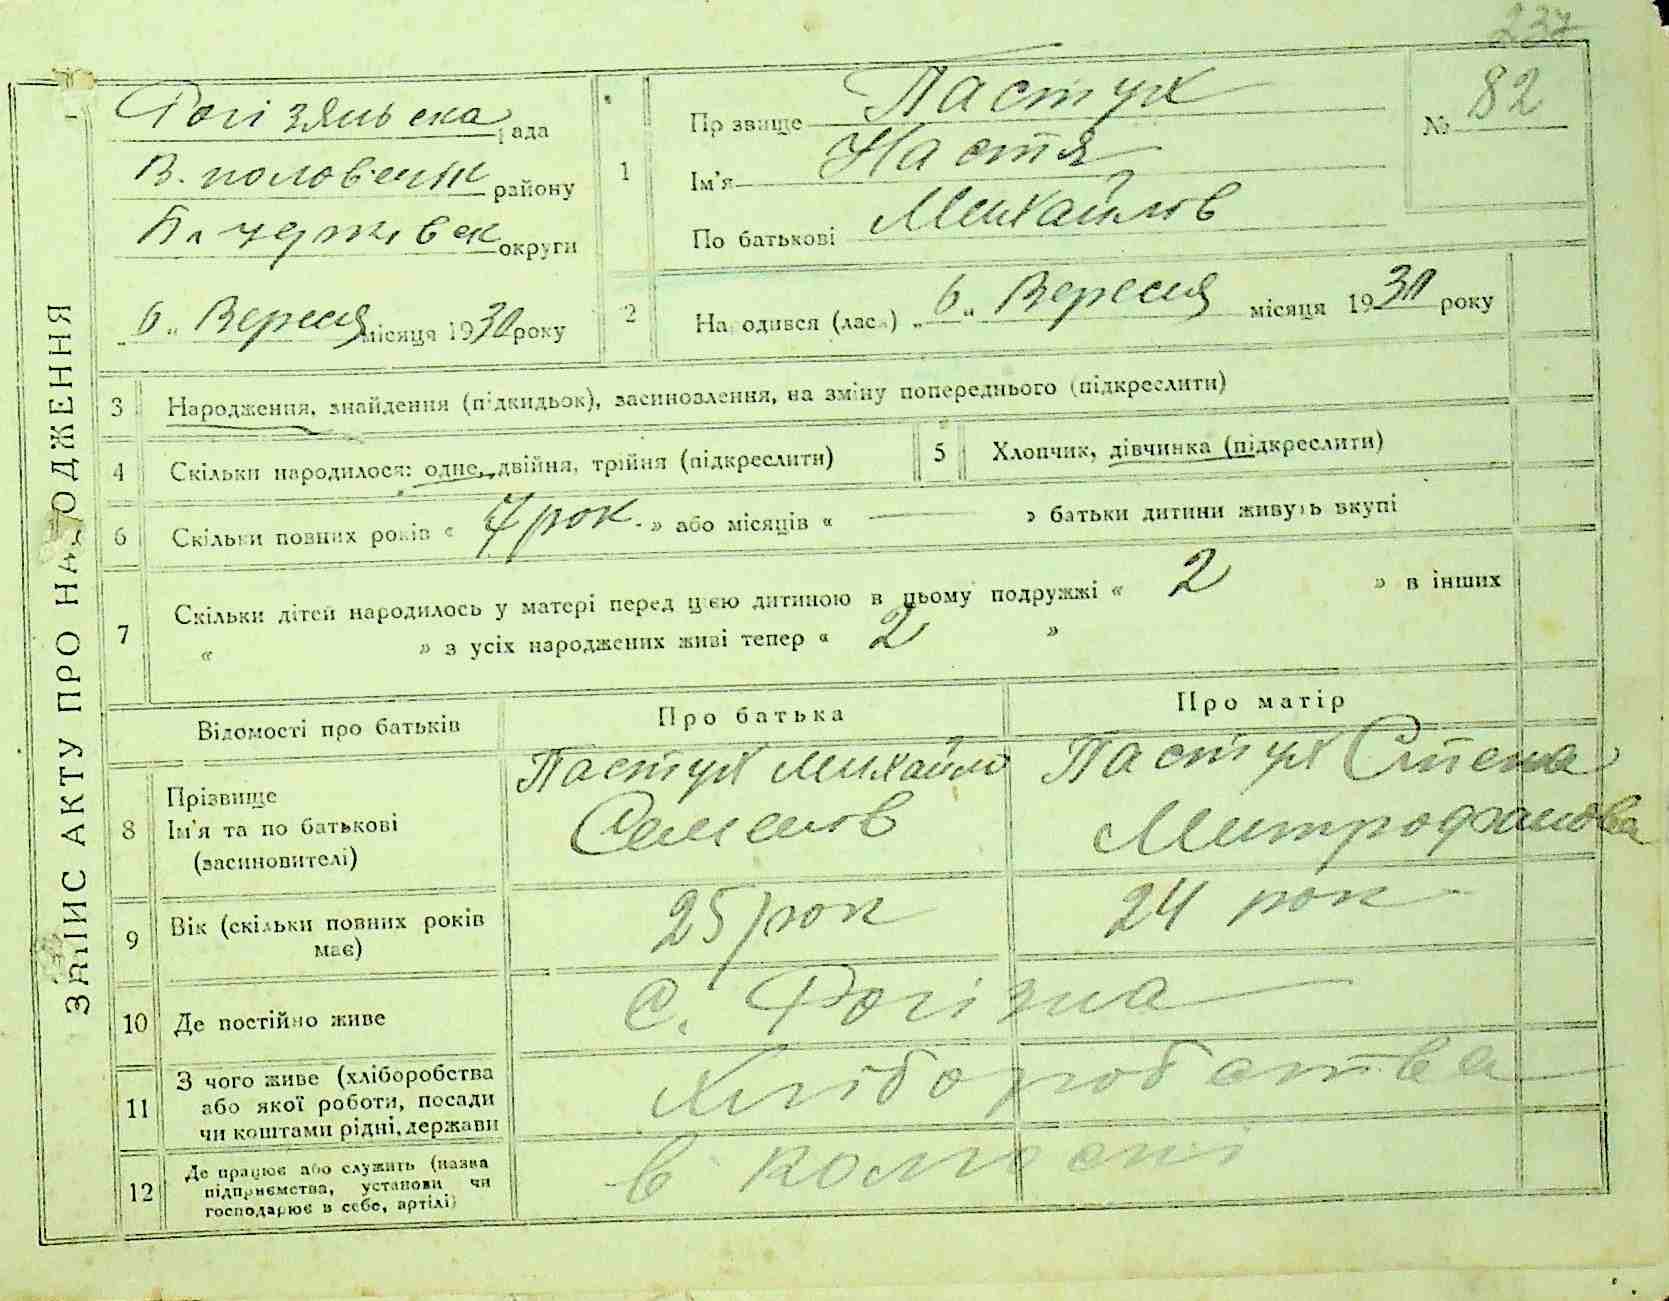 237
ЗАПИС АКТУ ПРО НАРОДЖЕННЯ
Рогізнянська рада
В. половецьк району
Б. церківськ округи
„6„ Вересня місяця 1930 року
1
Прізвище Пастух
Ім'я Настя
По батькові Михайлов
№ 82
2
Народився (лася) „6„ Вересня місяця 1930 року
3 Народження, знайдення (підкидьок), засиновлення, на зміну попереднього (підкреслити)
4 Скільки народилося: одне, двійня, трійня (підкреслити)
5 Хлопчик, дівчинка (підкреслити)
6 Скільки повних років « 7 рок. » або місяців « — » батьки дитини живуть вкупі
7 Скільки дітей народилось у матері перед цією дитиною в цьому подружжі « 2 » в інших
« » з усіх народжених живі тепер « 2 »
Відомості про батьків Про батька Про матір
8 Прізвище
Ім'я та по батькові
(засиновителі)
Пастух Михайло
Семенов
Пастух
Митрофанова
9 Вік (скільки повних років
має)
25 рок
24 рок
10 Де постійно живе с. Рогізна
11 З чого живе (хліборобства
або якої роботи, посади
чи коштами рідні, держави
Хліборобства
12 Де працює або служить (назва
підприємства, установи чи
господарює в себе, артілі)
в